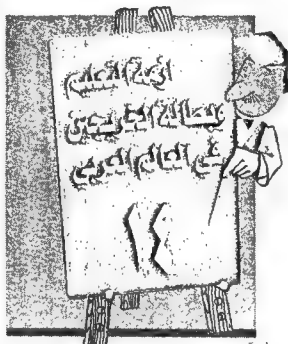 أزمة التعليم
وبطالة الخريجين
في العالم العربي
١٤